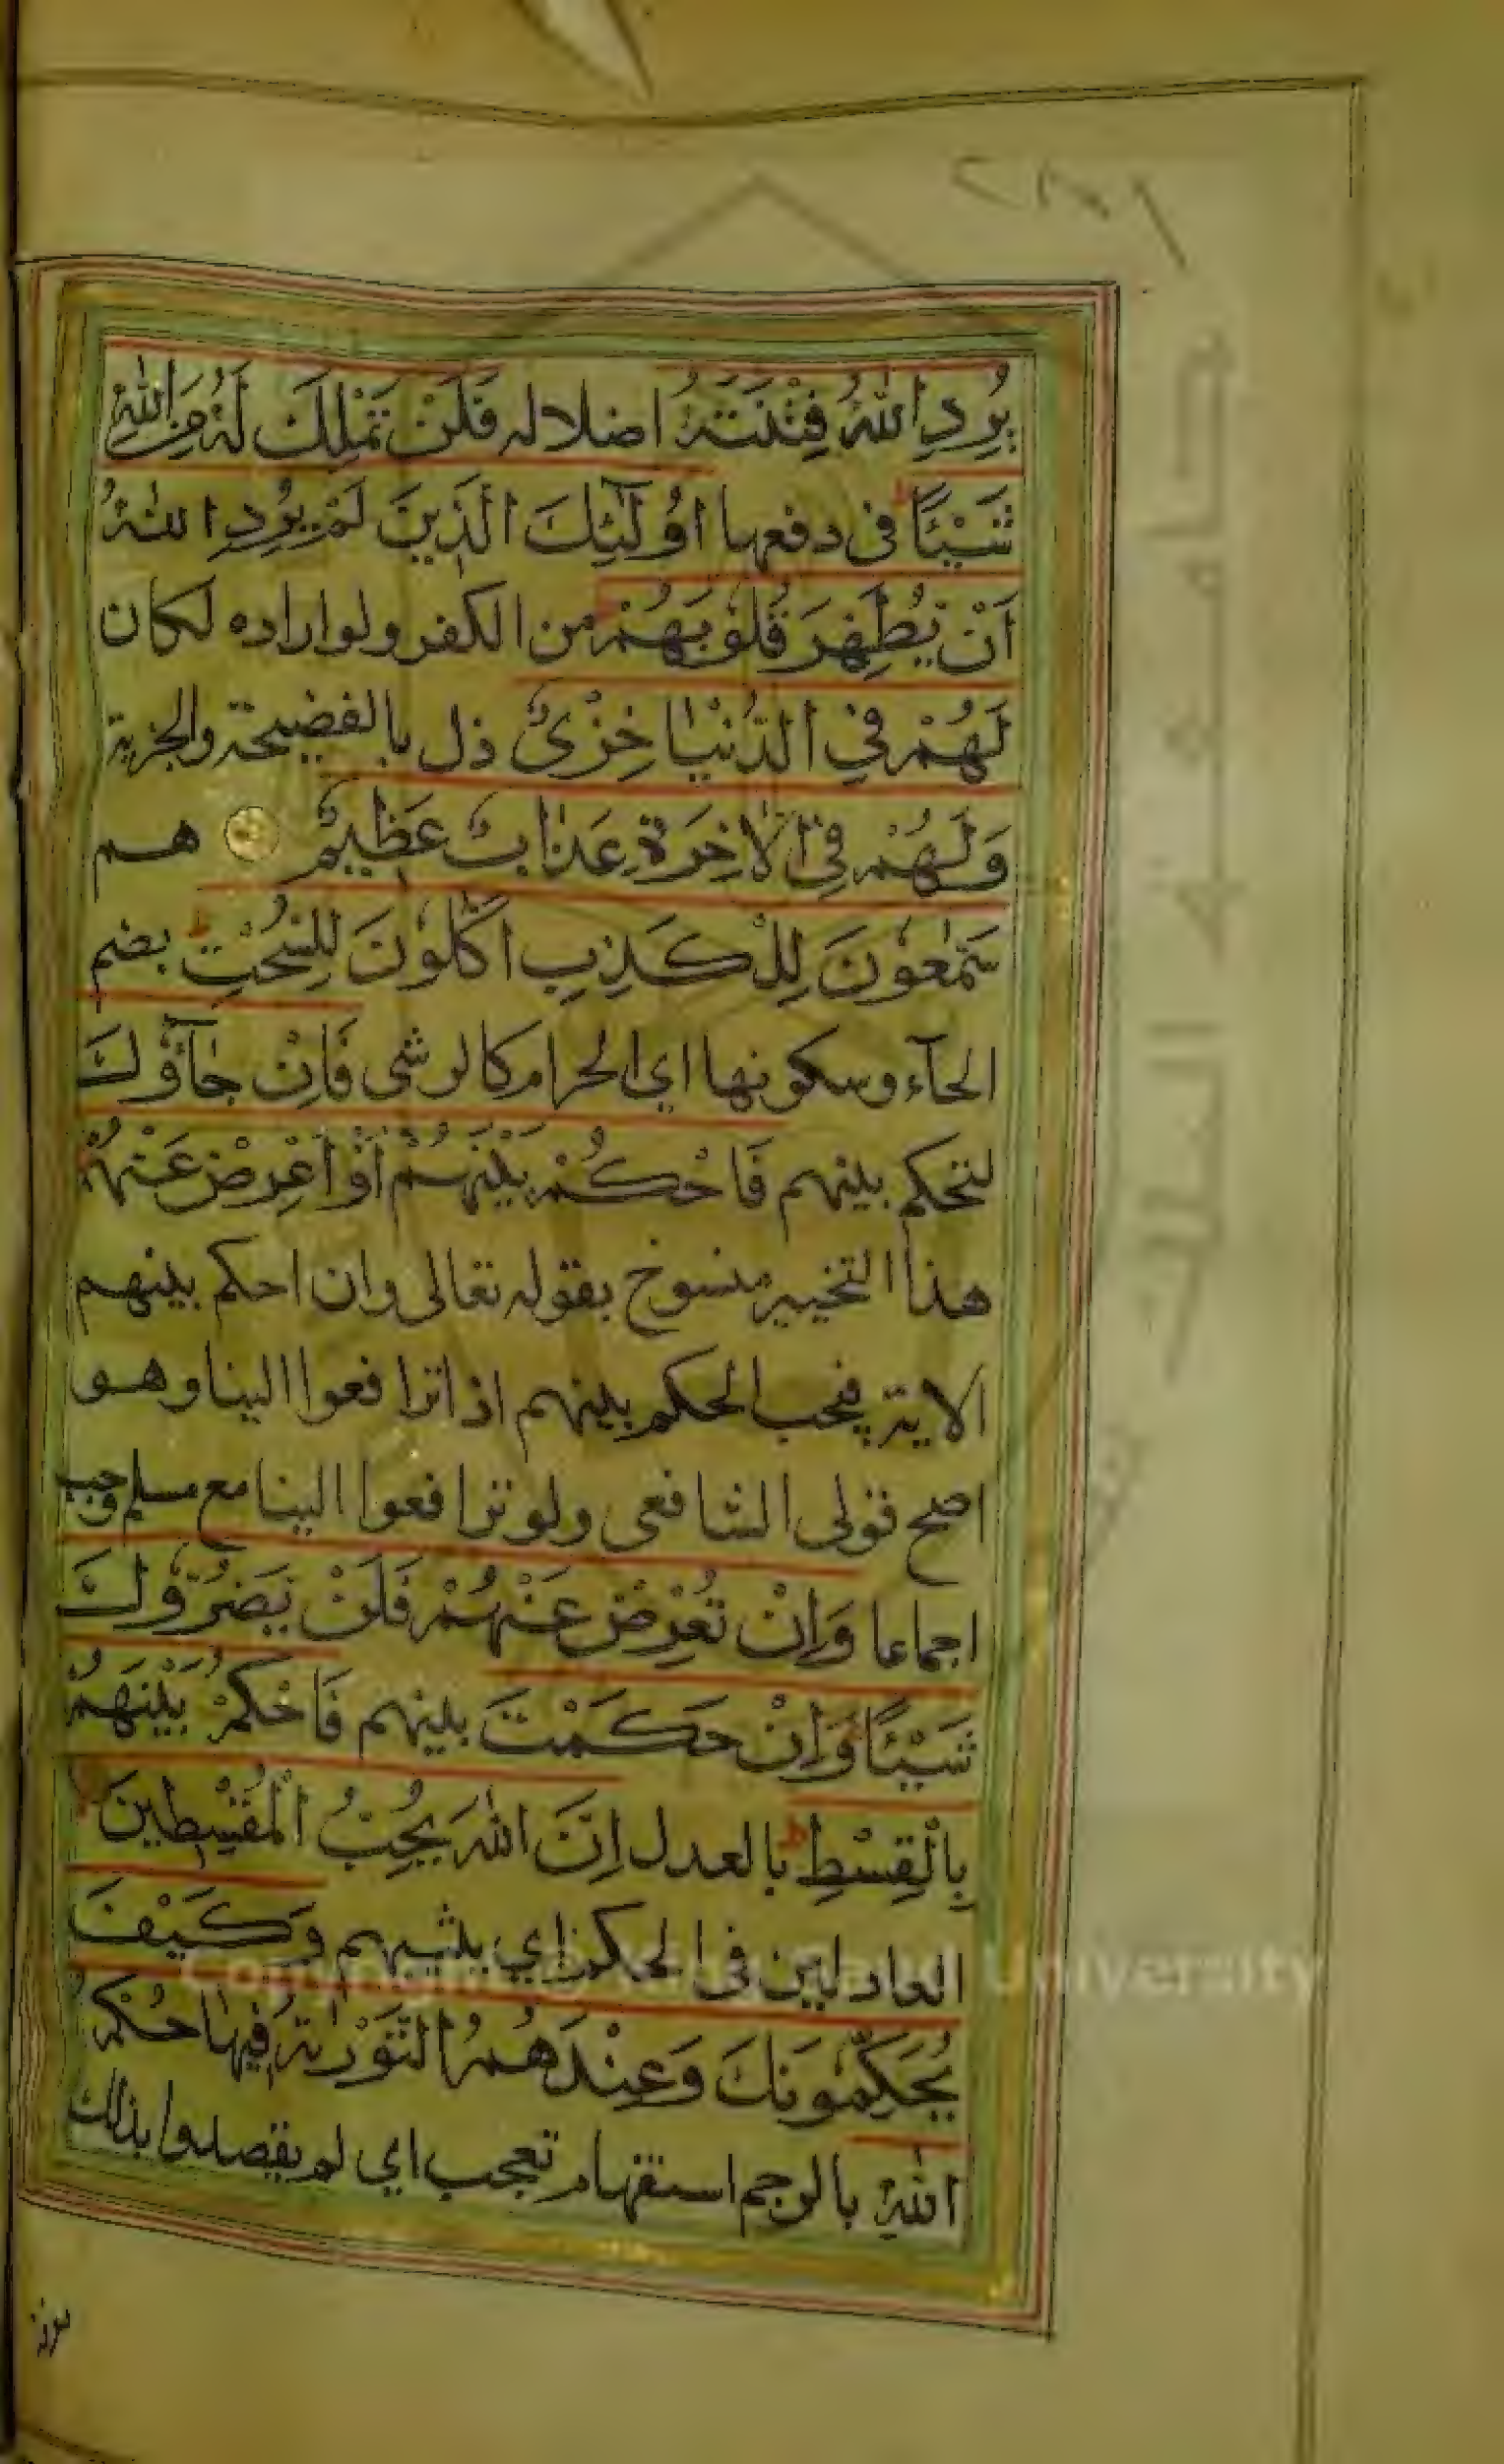 يُرِدِ اللّٰهُ فِتْنَتَهُ اضلاله فَلَنْ تَمْلِكَ لَهُ مِنَ اللّٰهِ
شَيْئًا ط فى دفعها اُولٰٓئِكَ الَّذِينَ لَمْ يُرِدِ اللّٰهُ
اَنْ يُطَهِّرَ قُلُوبَهُمْ من الكفر ولو اراده لكان
لَهُمْ فِي الدُّنْيَا خِزْىٌ ذل بالفضيحة والجزية
وَلَهُمْ فِي الْاٰخِرَةِ عَذَابٌ عَظِيمٌ هم
سَمّٰعُونَ لِلْكَذِبِ اَكّٰلُونَ لِلسُّحْتِ ط بضم
الحآء وسكونها اي الحرام كالرشى فَاِنْ جَآؤُكَ
لتحكم بينهم فَاحْكُمْ بَيْنَهُمْ اَوْ اَعْرِضْ عَنْهُمْ
هذا التخيير منسوخ بقوله تعالى وان احكم بينهم
الاية فيجب الحكم بينهم اذا ترافعوا الينا وهو
اصح قولى الشافعى ولو ترافعوا الينا مع مسلم وجب
اجماعا وَاِنْ تُعْرِضْ عَنْهُمْ فَلَنْ يَضُرُّوكَ
شَيْئًا وَاِنْ حَكَمْتَ بينهم فَاحْكُمْ بَيْنَهُمْ
بِالْقِسْطِ ط بالعدل اِنَّ اللّٰهَ يُحِبُّ الْمُقْسِطِينَ
العادلين فى الحكم اي يثيبهم وَكَيْفَ
يُحَكِّمُونَكَ وَعِنْدَهُمُ التَّوْرٰىةُ فِيهَا حُكْمُ
اللّٰهِ بالرجم استفهام تعجب اي لم يقصدوا بذلك
جامعة الملك
Copyright © King Saud University